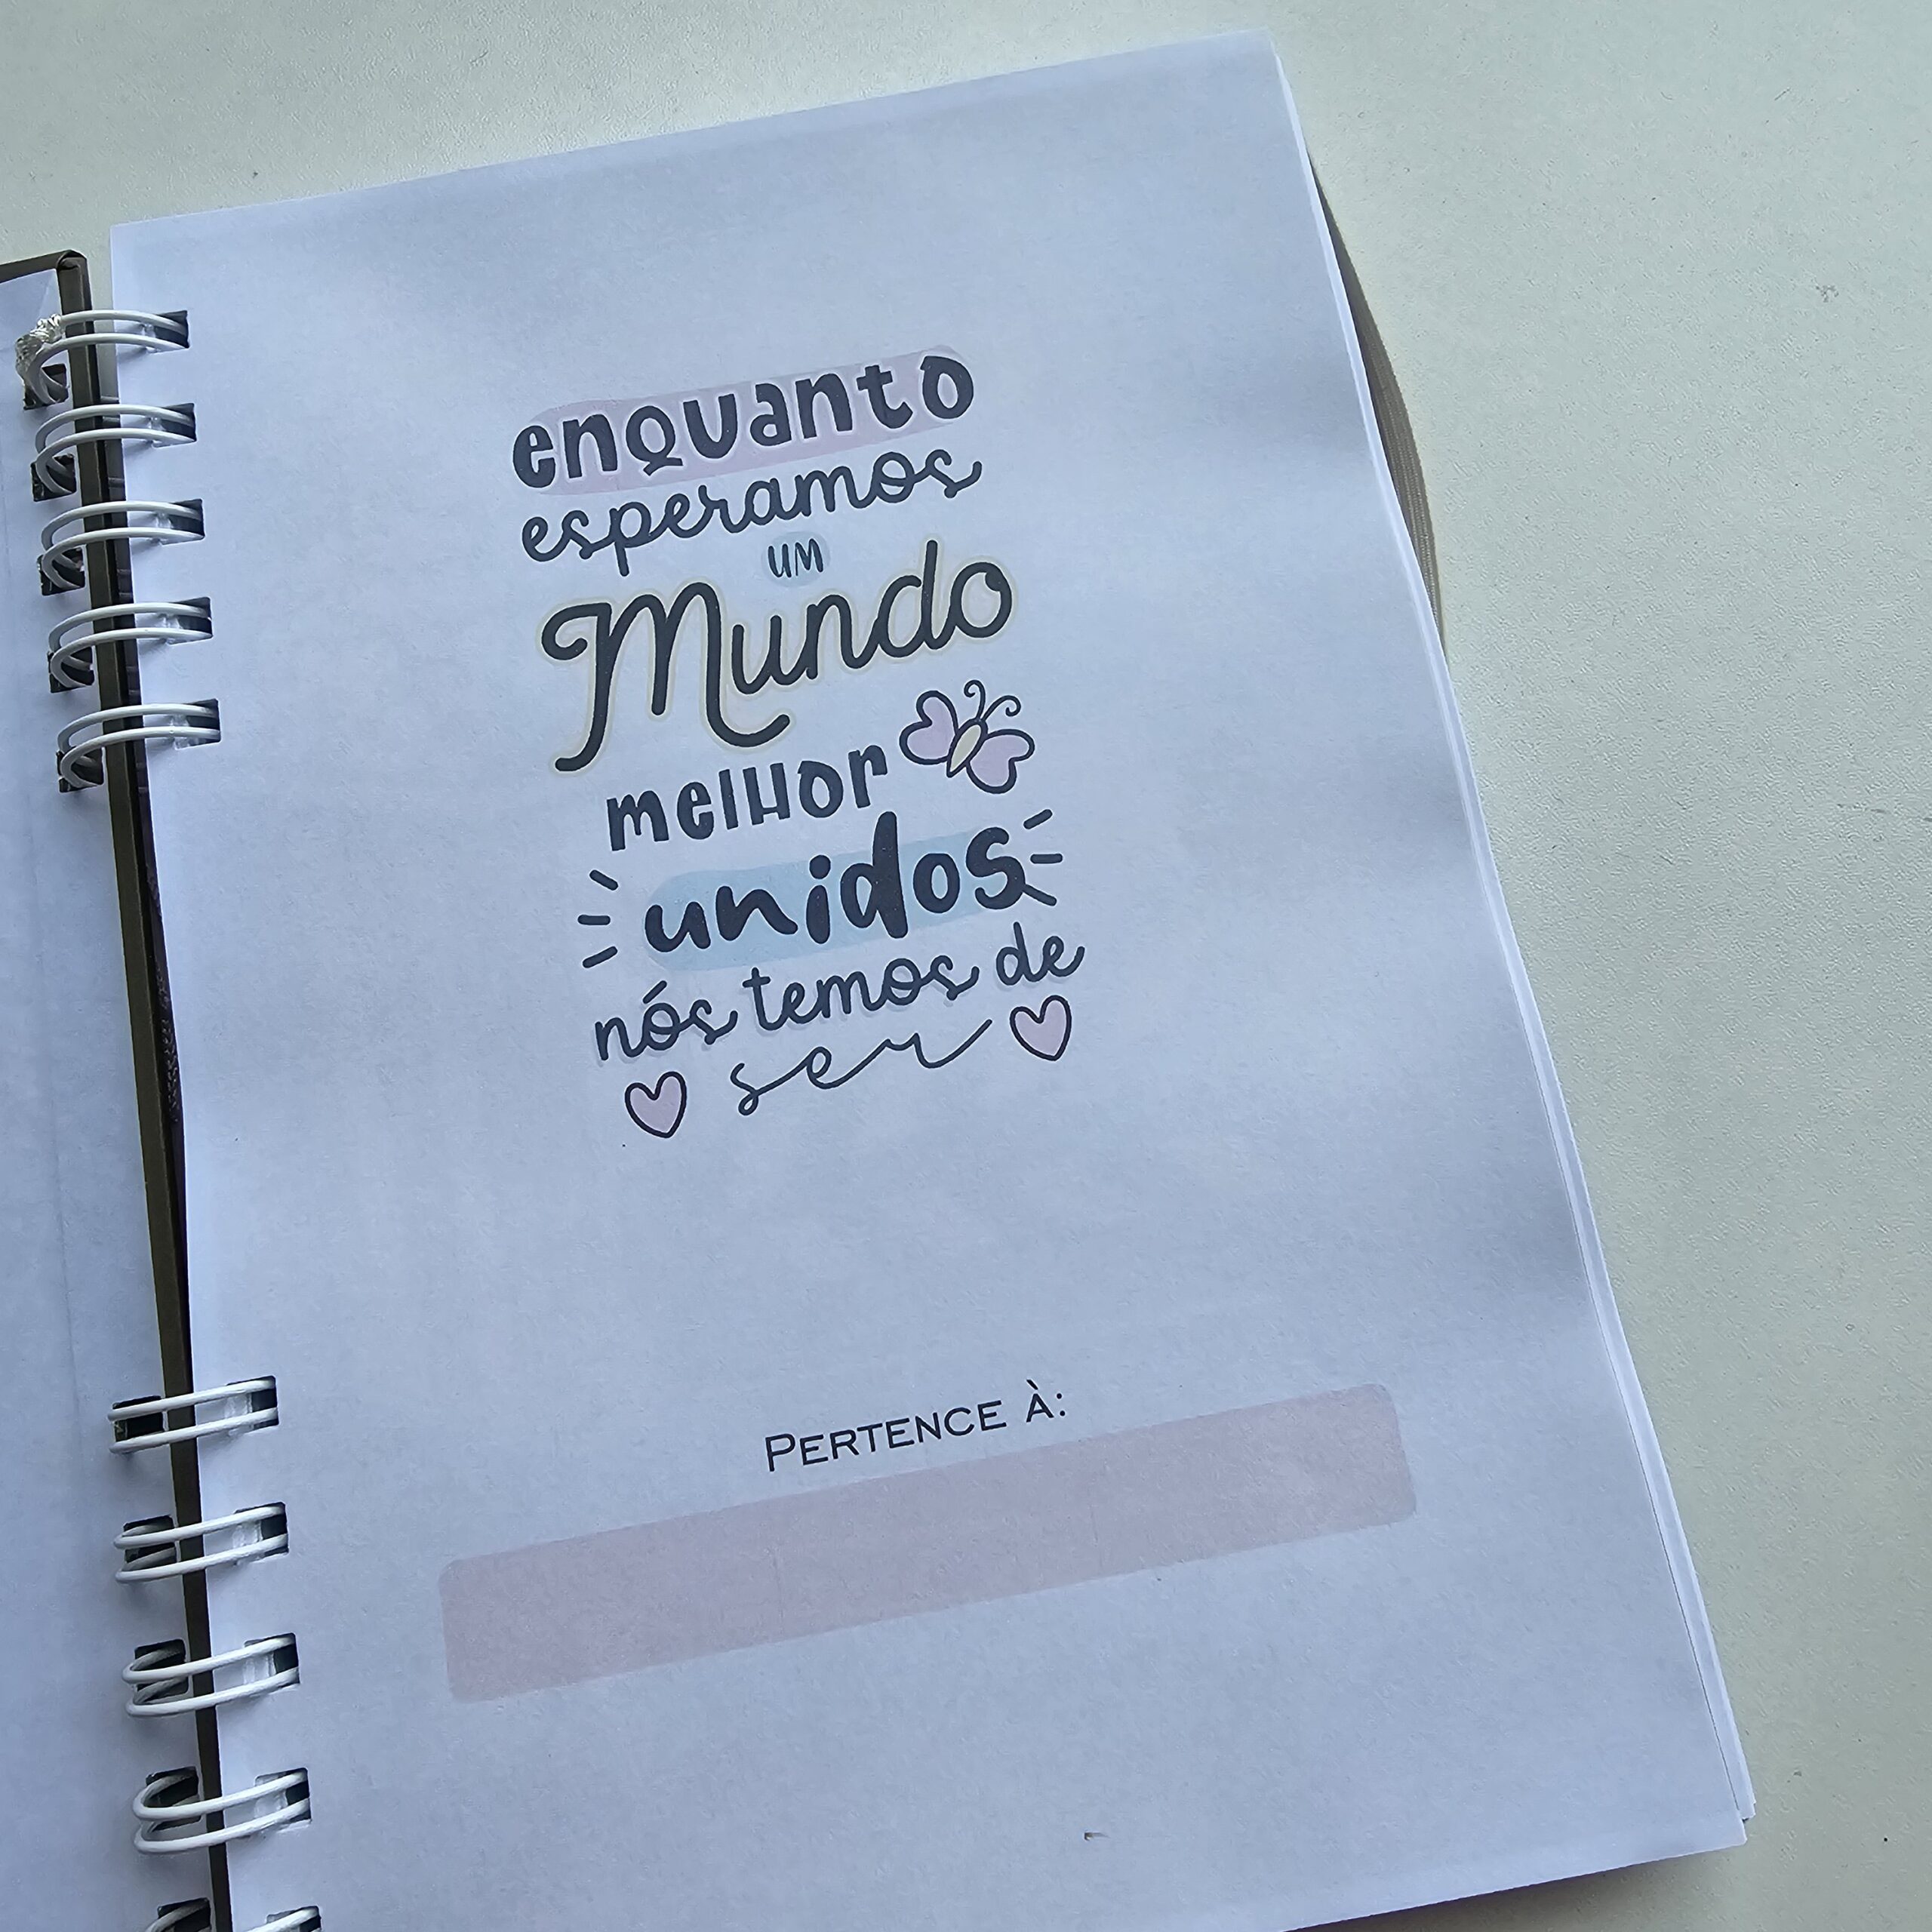 enquanto
esperamos
um
Mundo
melhor
unidos
nós temos de
ser
PERTENCE À: